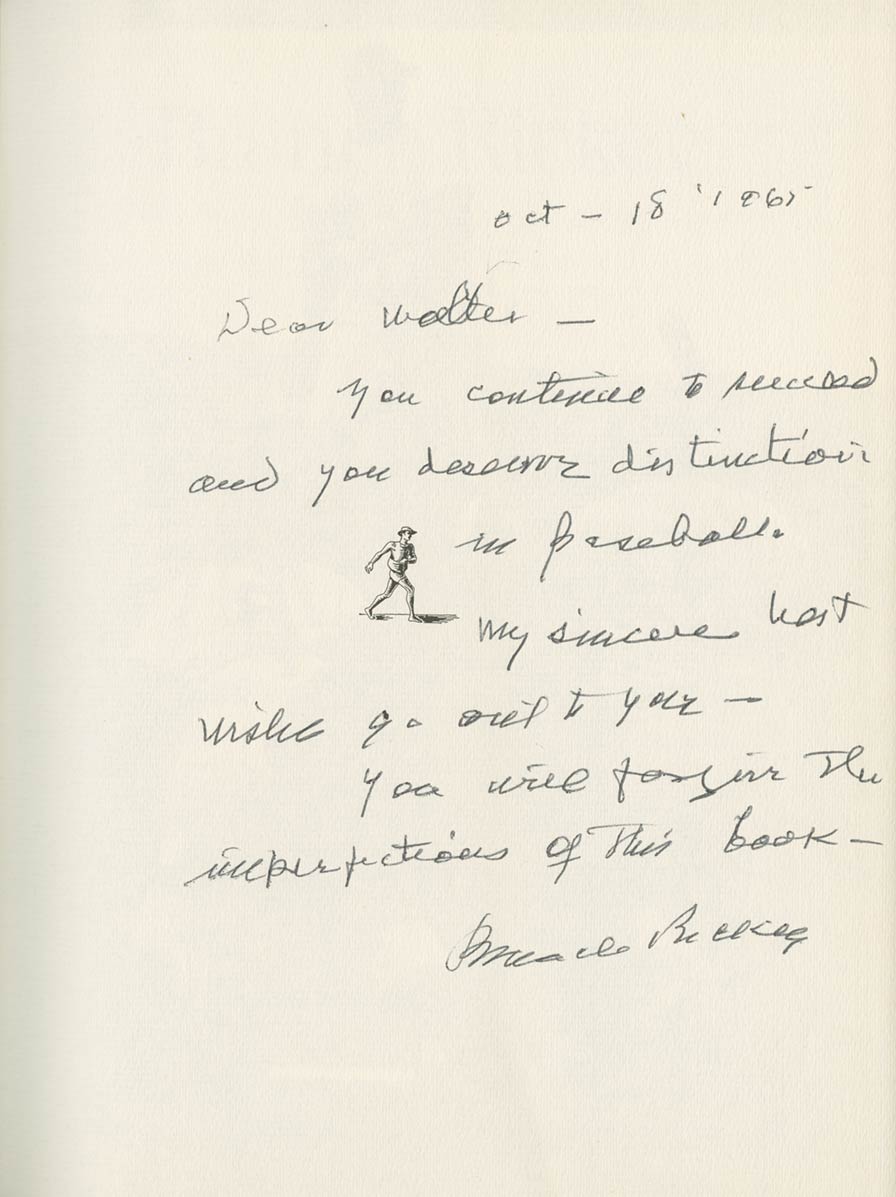 Oct - 18 '1965
Dear Walter -
You continue to succeed
and you deserve distinction
in baseball.
My sincere best
wishes go out to you -
You will forgive the
imperfections of this book -
Branch Rickey